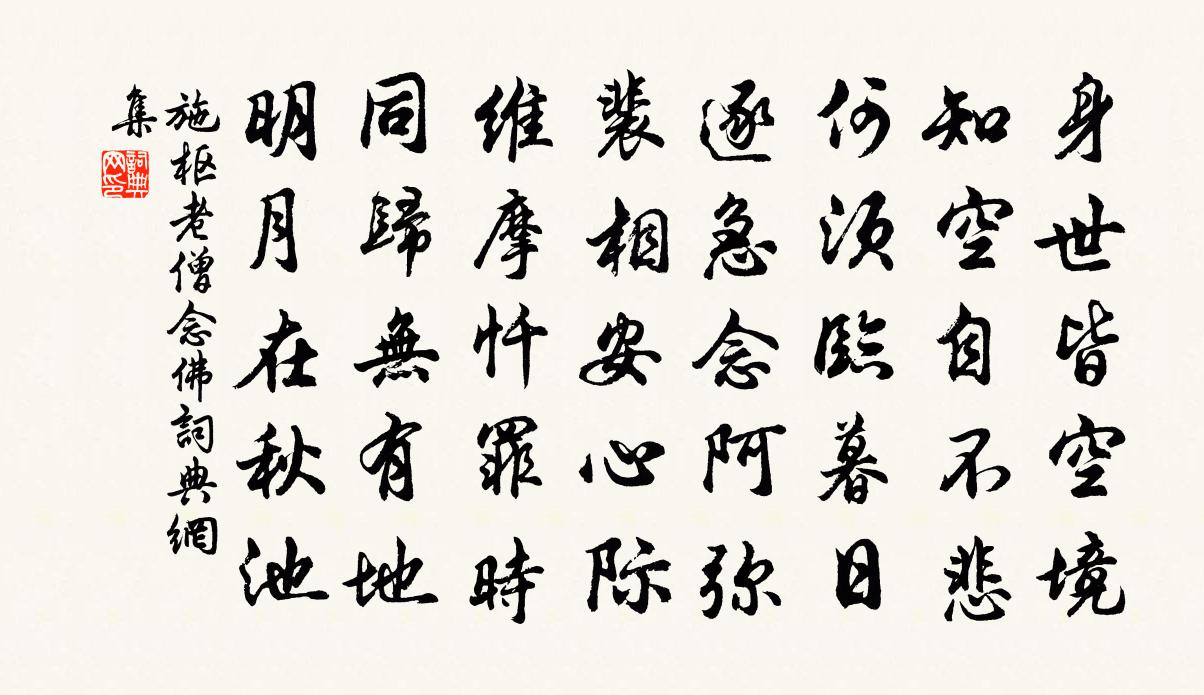 身世皆空境
知空自不悲
何須臨暮日
逐急念阿弥
裴相安心际
維摩忏罪時
同歸無有地
明月在秋池
施枢老僧念佛詞典網
集
詞典網印